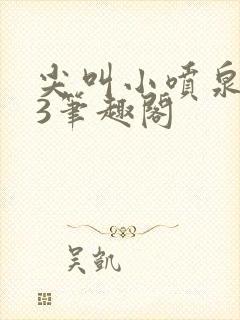 尖叫小喷泉
3笔趣阁
吴凯